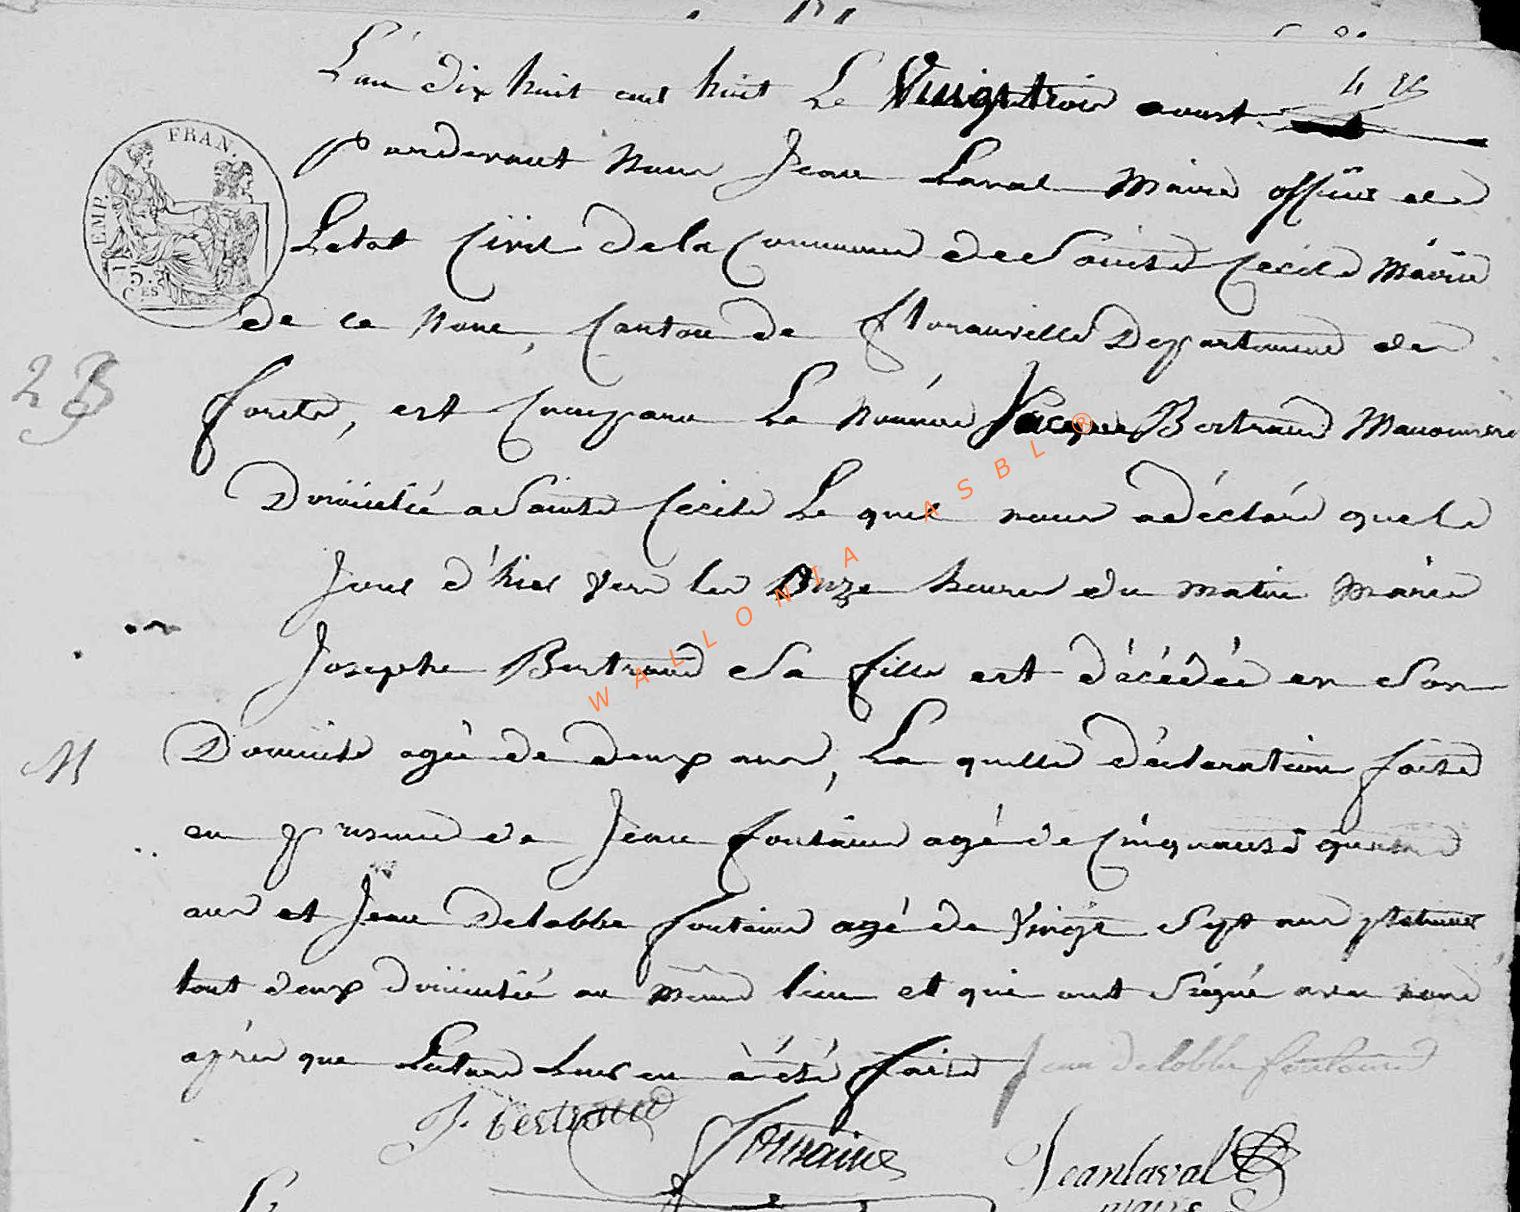 L'an dix huit cent huit Le Vingt trois aoust
pardevant nous Jean Laval Maire officier de
FRAN.
EMP.
15.
CES
Letat Civil de la Commune de Sainte Cecile Mairie
de ce nom, Canton de florauville Departement de
2 B
forets, est Comparu Le nommé Jacque Bertrand Manouvre
Domicilié a Sainte Cecile Le quel nous a déclaré que le
Jour d'hier vers les Onze heures du matin Marie
Josephe Bertrand Sa fille est décédée en Son
Domicile agée de deux ans, La quelle déclaration faite
en presence de Jean fontaine agé de Cinquante quatre
ans et Jean Delobbe fontaine agé de Vingt Sept ans
tout deux domicilié au même lieu et qui ont Signé avec nous
aprés que Lecture Leur en à été faite Jean delobbe fontaine
J. bertrand fontaine Jean laval
maire
WALLONIA ASBL ®